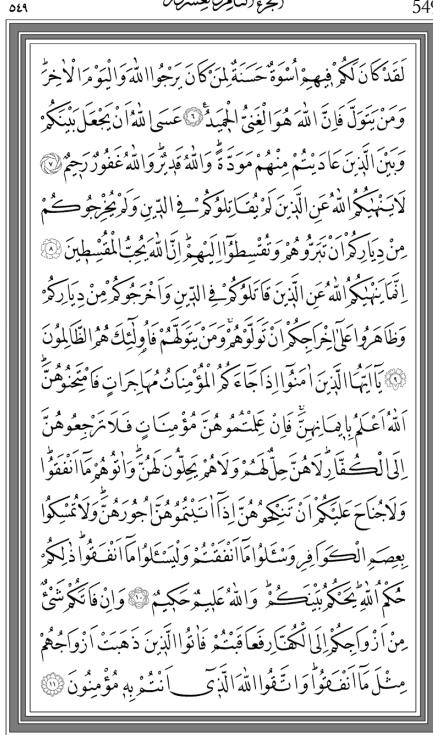 ٥٤٩ الجزء الثامن والعشرون 549
لَقَدْ كَانَ لَكُمْ فِيهِمْ اُسْوَةٌ حَسَنَةٌ لِمَنْ كَانَ يَرْجُوا اللهَ وَالْيَوْمَ الْاٰخِرَۜ
وَمَنْ يَتَوَلَّ فَاِنَّ اللهَ هُوَ الْغَنِيُّ الْحَمِيدُ۟ ﴿٦﴾ عَسَى اللهُ اَنْ يَجْعَلَ بَيْنَكُمْ
وَبَيْنَ الَّذِينَ عَادَيْتُمْ مِنْهُمْ مَوَدَّةًۜ وَاللهُ قَدِيرٌۜ وَاللهُ غَفُورٌ رَحِيمٌ ﴿٧﴾
لَا يَنْهٰيكُمُ اللهُ عَنِ الَّذِينَ لَمْ يُقَاتِلُوكُمْ فِي الدِّينِ وَلَمْ يُخْرِجُوكُمْ
مِنْ دِيَارِكُمْ اَنْ تَبَرُّوهُمْ وَتُقْسِطُٓوا اِلَيْهِمْۜ اِنَّ اللهَ يُحِبُّ الْمُقْسِطِينَ ﴿٨﴾
اِنَّمَا يَنْهٰيكُمُ اللهُ عَنِ الَّذِينَ قَاتَلُوكُمْ فِي الدِّينِ وَاَخْرَجُوكُمْ مِنْ دِيَارِكُمْ
وَظَاهَرُوا عَلٰٓى اِخْرَاجِكُمْ اَنْ تَوَلَّوْهُمْۚ وَمَنْ يَتَوَلَّهُمْ فَاُو۬لٰٓئِكَ هُمُ الظَّالِمُونَ
﴿٩﴾ يَٓا اَيُّهَا الَّذِينَ اٰمَنُٓوا اِذَا جَٓاءَكُمُ الْمُؤْمِنَاتُ مُهَاجِرَاتٍ فَامْتَحِنُوهُنَّۜ
اَللهُ اَعْلَمُ بِاِيمَانِهِنَّۚ فَاِنْ عَلِمْتُمُوهُنَّ مُؤْمِنَاتٍ فَلَا تَرْجِعُوهُنَّ
اِلَى الْكُفَّارِۜ لَا هُنَّ حِلٌّ لَهُمْ وَلَا هُمْ يَحِلُّونَ لَهُنَّۜ وَاٰتُوهُمْ مَٓا اَنْفَقُواۜ
وَلَا جُنَاحَ عَلَيْكُمْ اَنْ تَنْكِحُوهُنَّ اِذَٓا اٰتَيْتُمُوهُنَّ اُجُورَهُنَّۜ وَلَا تُمْسِكُوا
بِعِصَمِ الْكَوَافِرِ وَسْـَٔلُوا مَٓا اَنْفَقْتُمْ وَلْيَسْـَٔلُوا مَٓا اَنْفَقُواۜ ذٰلِكُمْ
حُكْمُ اللهِۜ يَحْكُمُ بَيْنَكُمْۜ وَاللهُ عَلِيمٌ حَكِيمٌ ﴿١٠﴾ وَاِنْ فَاتَكُمْ شَيْءٌ
مِنْ اَزْوَاجِكُمْ اِلَى الْكُفَّارِ فَعَاقَبْتُمْ فَاٰتُوا الَّذِينَ ذَهَبَتْ اَزْوَاجُهُمْ
مِثْلَ مَٓا اَنْفَقُواۜ وَاتَّقُوا اللهَ الَّذِٓي اَنْتُمْ بِهِ مُؤْمِنُونَ ﴿١١﴾